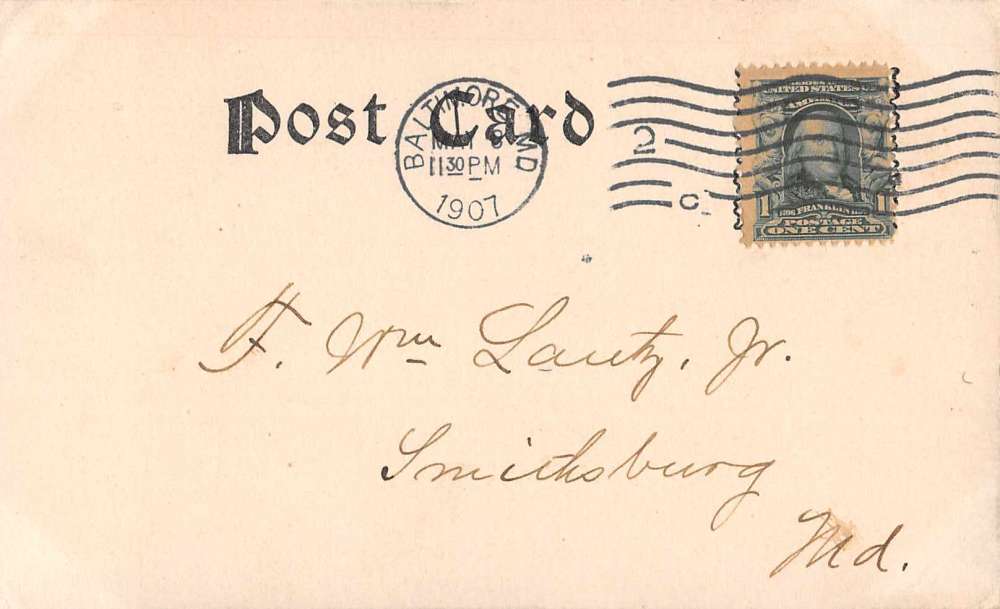 Post Card
BALTIMORE, MD
MAY
11 30 PM
1907
2
C.
UNITED STATES
1 FRANKLIN 1
POSTAGE
ONE CENT
F. Wm Lantz, Jr.
Smithsburg
Md.